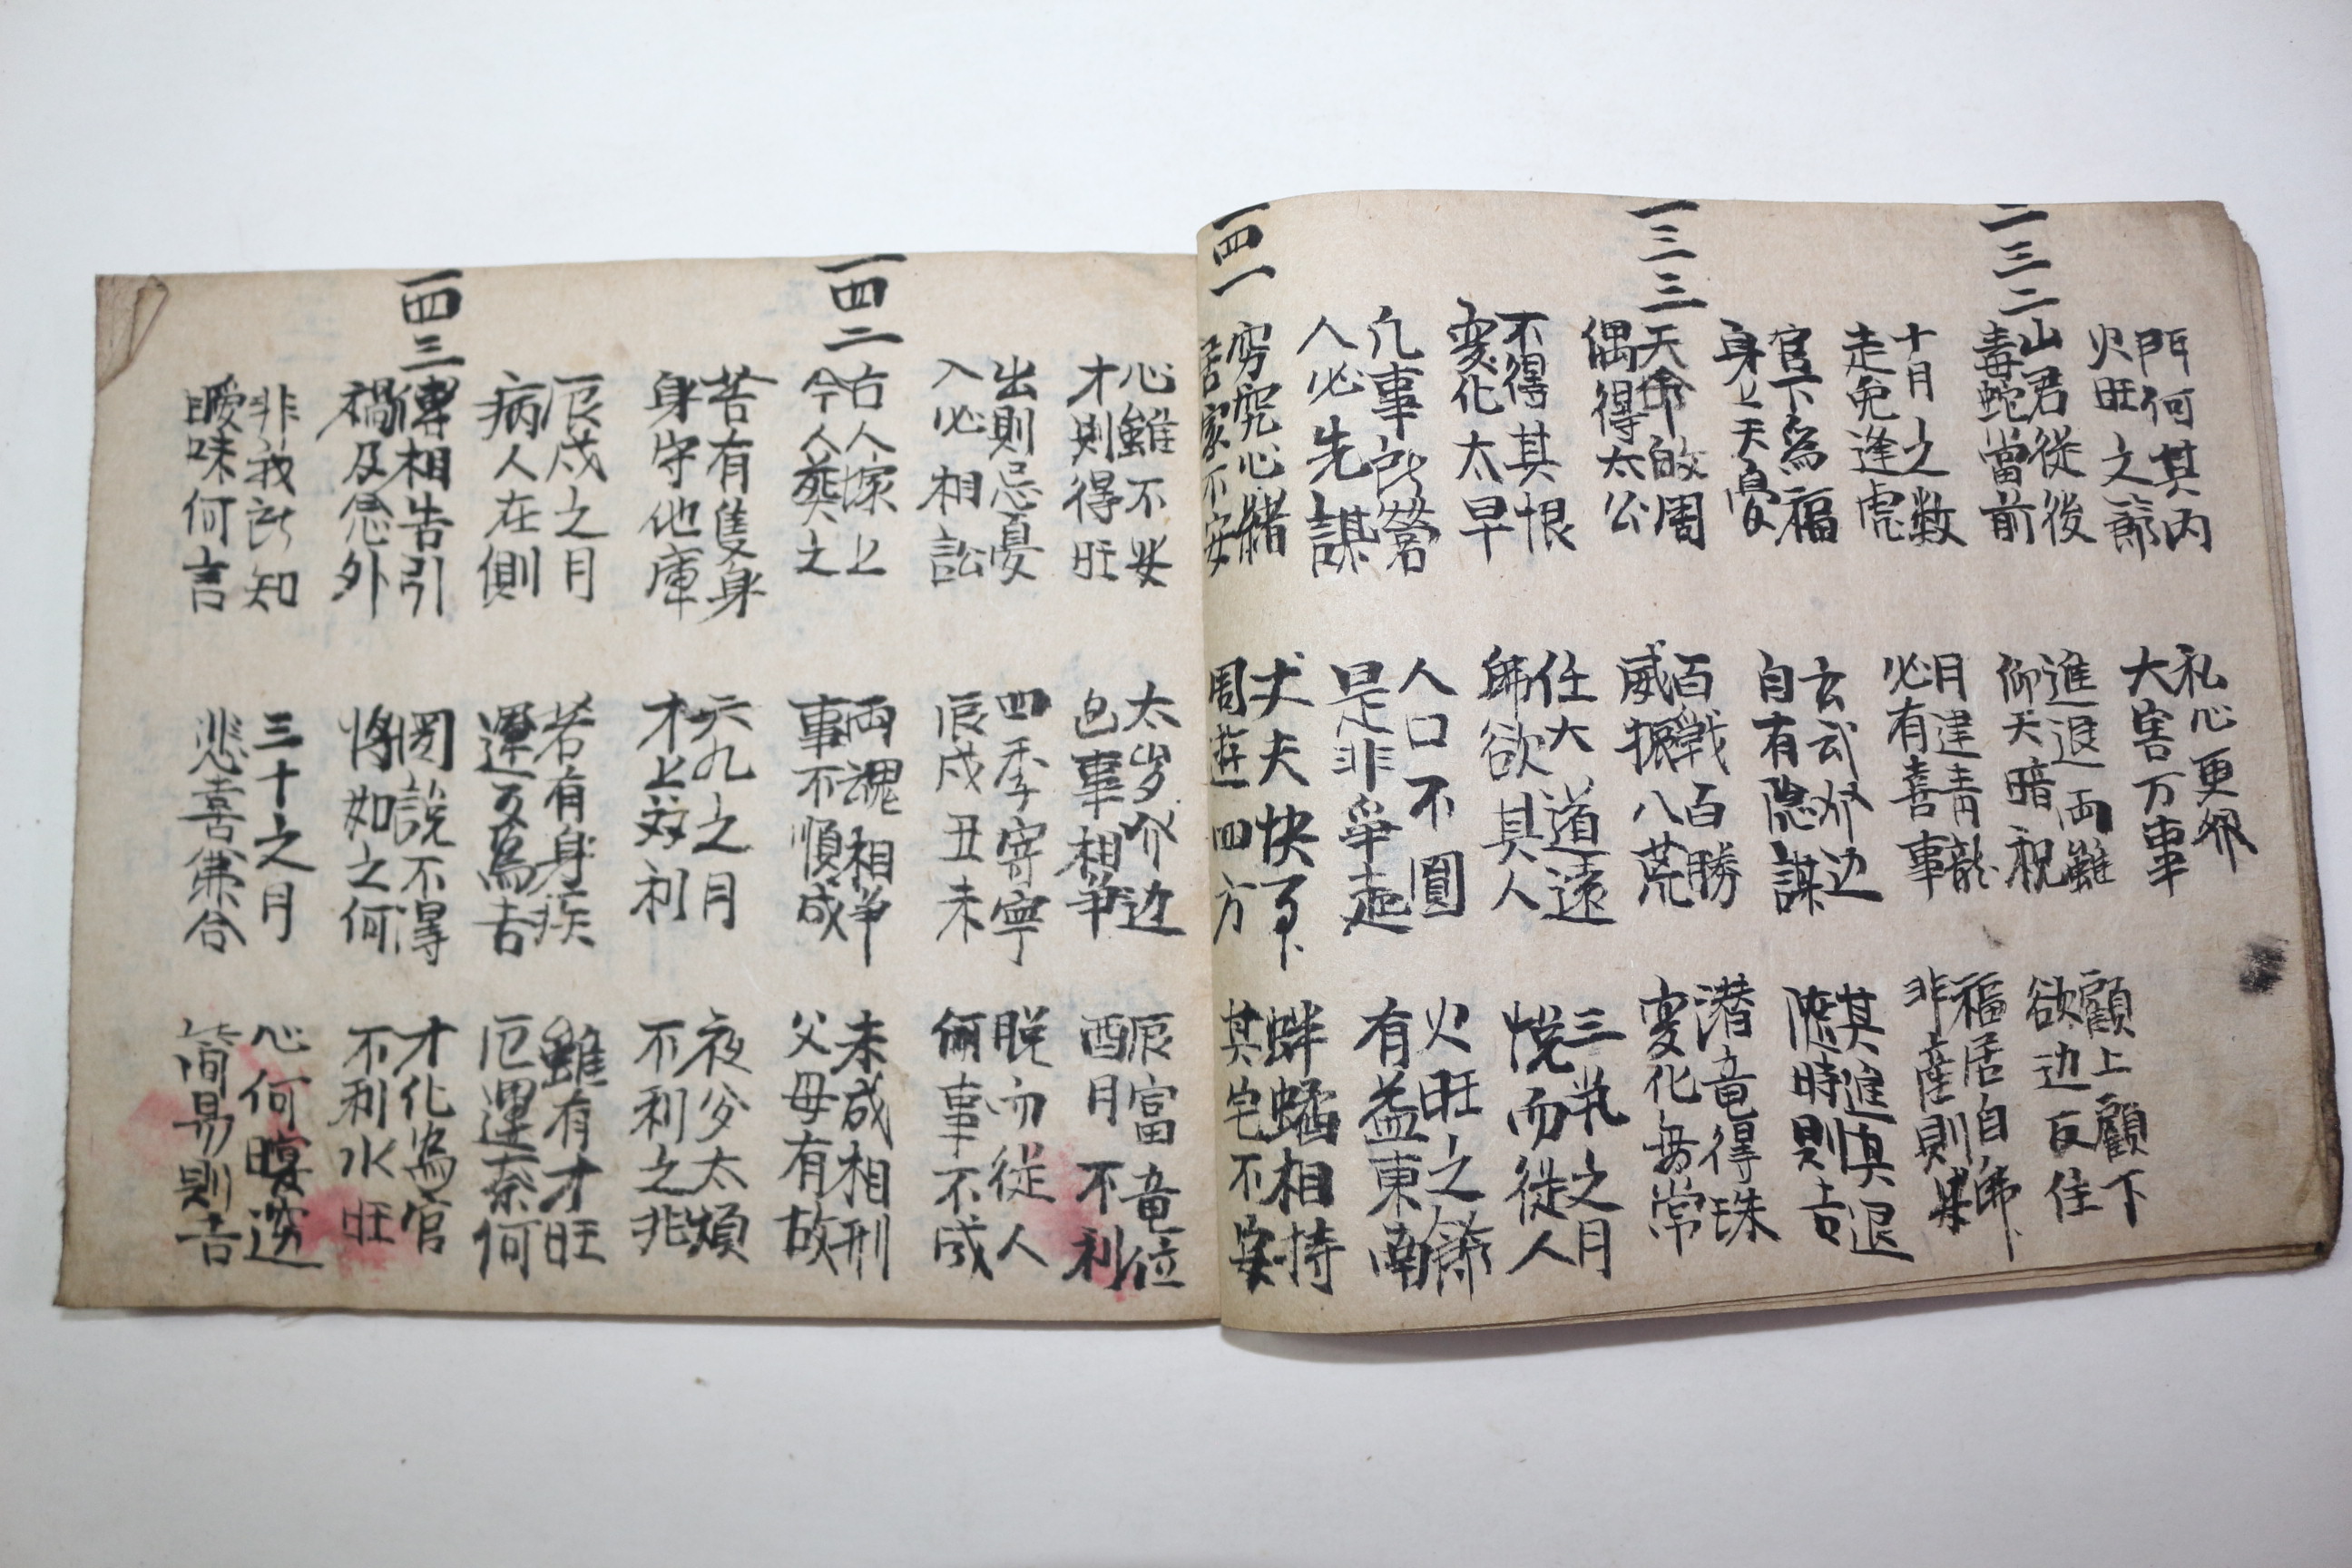 門何其內
火旺之節
私心更邪
大害万事
顧上顧下
欲边反住
一三二
山君從後
毒蛇當前
進退両難
仰天暗祝
福居自歸
非產則某
十月之数
走兔逢虎
月建青龍
必有喜事
其進其退
隨時則吉
官下爲福
身上天憂
玄武発边
自有隐謀
潜竜得珠
変化無常
一三三
天命的周
偶得太公
百戰百勝
威振八荒
三夷之月
悅而從人
不得其恨
変化太早
任大道遠
歸欲其人
火旺之節
有益東南
凡事所營
人必先謀
人口不圓
是非爭走
蚌蟠相持
其宅不安
一四一
穷究心緒
居家不安
丈夫快了
周遊四方
辰富竜位
酉月不利
心雖不安
才則得旺
太岁発边
包事相爭
脫而從人
備事不成
出則忌憂
入必相訟
四季寄寧
辰戌丑未
未成相刑
父母有故
一四二
古人塚上
今人葬之
両魂相爭
事不順成
夜夢太煩
不利之兆
苦有隻身
身守他庫
六九之月
才上効利
雖有才旺
厄運奈何
辰戌之月
病人在側
若有身疾
運反爲吉
才化為官
不利水旺
一四三
傳相告引
禍及意外
圖說不得
將如之何
心何暖邃
簡易則吉
非我所知
曖昧何言
三十之月
悲喜兼合